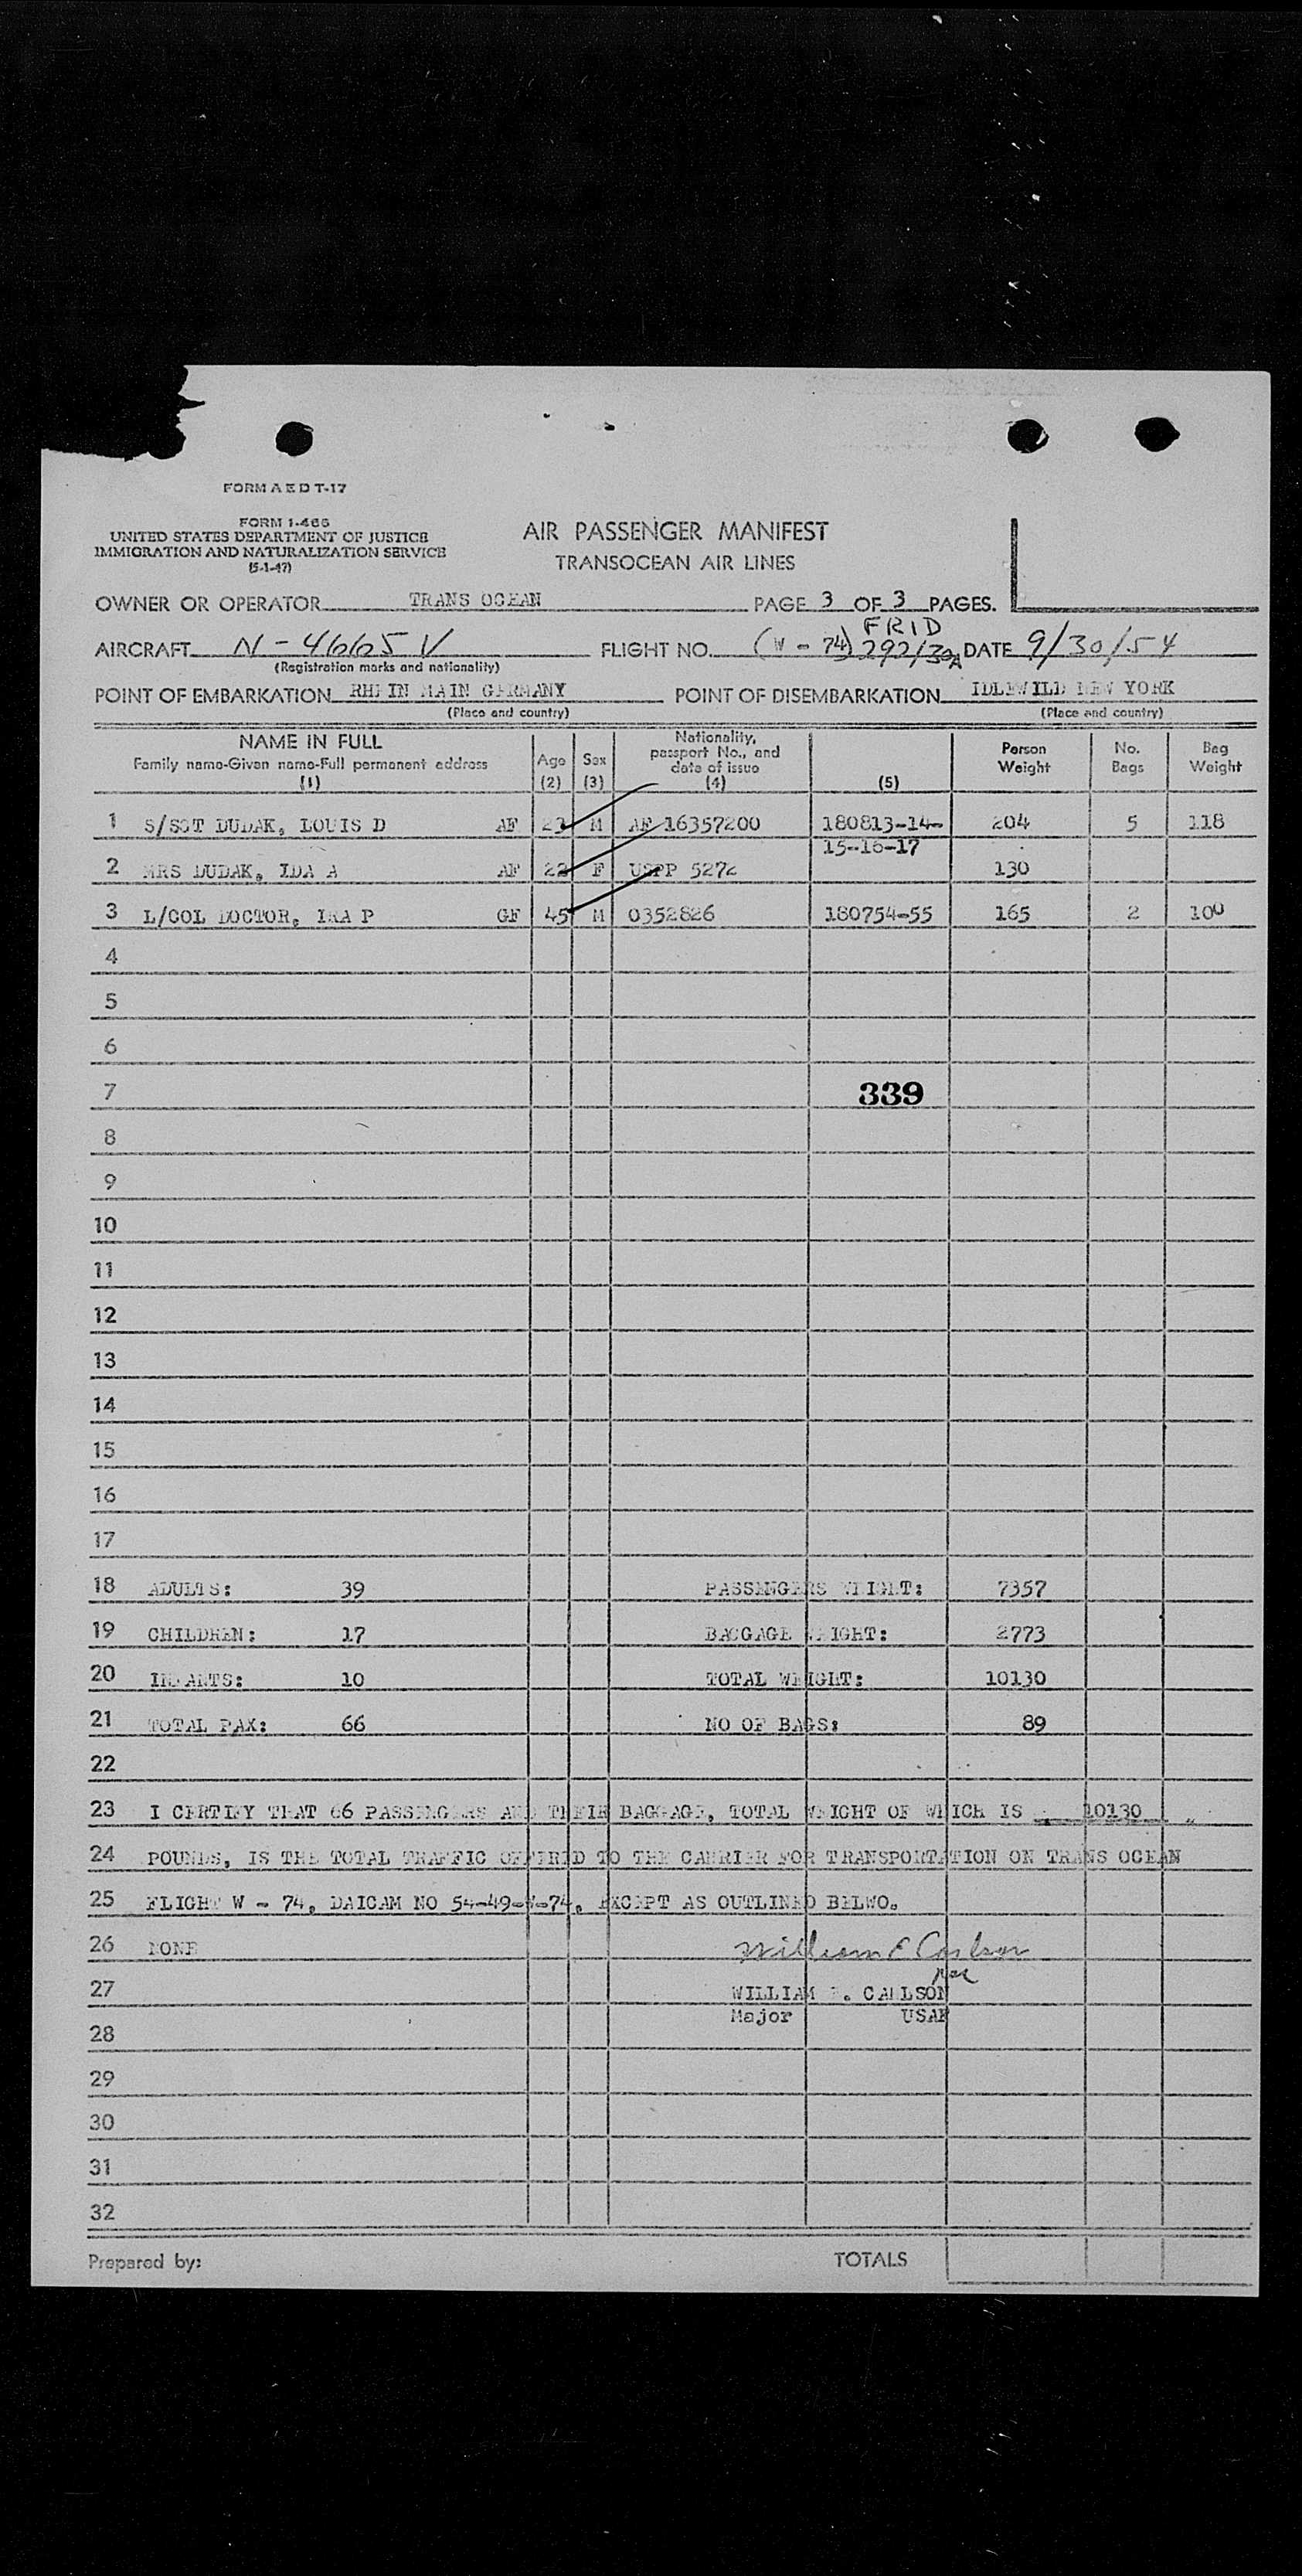 FORM A E D T-17
FORM I-466
UNITED STATES DEPARTMENT OF JUSTICE
IMMIGRATION AND NATURALIZATION SERVICE
(5-1-47)
AIR PASSENGER MANIFEST
TRANSOCEAN AIR LINES
OWNER OR OPERATOR TRANS OCEAN PAGE 3 OF 3 PAGES.
FRID
AIRCRAFT N-4665V FLIGHT NO. (W - 74) 292/30A DATE 9/30/54
(Registration marks and nationality)
POINT OF EMBARKATION RHEIN MAIN GERMANY POINT OF DISEMBARKATION IDLEWILD NEW YORK
(Place and country) (Place and country)
NAME IN FULL
Family name-Given name-Full permanent address
(1)
Age
(2)
Sex
(3)
Nationality,
passport No., and
date of issue
(4)
(5)
Person
Weight
No.
Bags
Bag
Weight
1 S/SGT DUDAK, LOUIS D AF M AF 16357200 180813-14- 204 5 118
15-16-17
2 MRS DUDAK, IDA A AF 22 F USPP 5272 130
3 L/COL DOCTOR, IRA P GF 45 M 0352826 180754-55 165 2 100
4
5
6
7 339
8
9
10
11
12
13
14
15
16
17
18 ADULTS: 39 PASSENGERS WEIGHT: 7357
19 CHILDREN: 17 BAGGAGE WEIGHT: 2773
20 INFANTS: 10 TOTAL WEIGHT: 10130
21 TOTAL PAX: 66 NO OF BAGS: 89
22
23 I CERTIFY THAT 66 PASSENGERS AND THEIR BAGGAGE, TOTAL WEIGHT OF WHICH IS 10130
24 POUNDS, IS THE TOTAL TRAFFIC OFFERED TO THE CARRIER FOR TRANSPORTATION ON TRANS OCEAN
25 FLIGHT W - 74, DAICAM NO 54-49-W-74, EXCEPT AS OUTLINED BELWO.
26 NONE William E Carlson
27 WILLIAM E. CARLSON
Major USAF
28
29
30
31
32
Prepared by: TOTALS